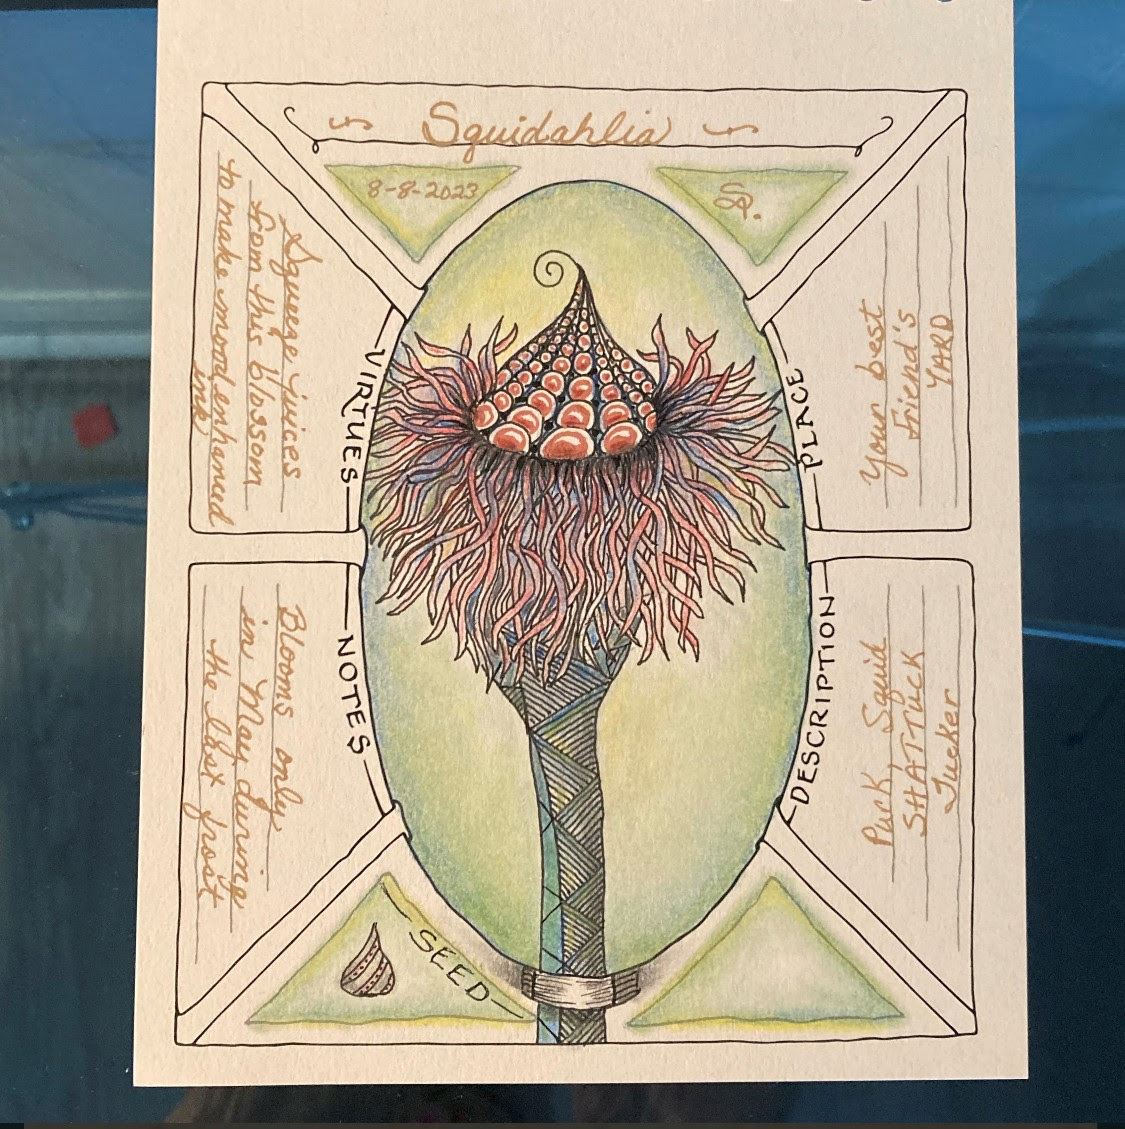 Squidahlia
8-8-2023
SP.
VIRTUES
Squeege juices
from this blossom
to make mood enhanced
ink
PLACE
Your best
friend's
YARD
NOTES
Blooms only
in May during
the last frost
DESCRIPTION
Puck, Squid
SHATTUCK
Tucker
SEED